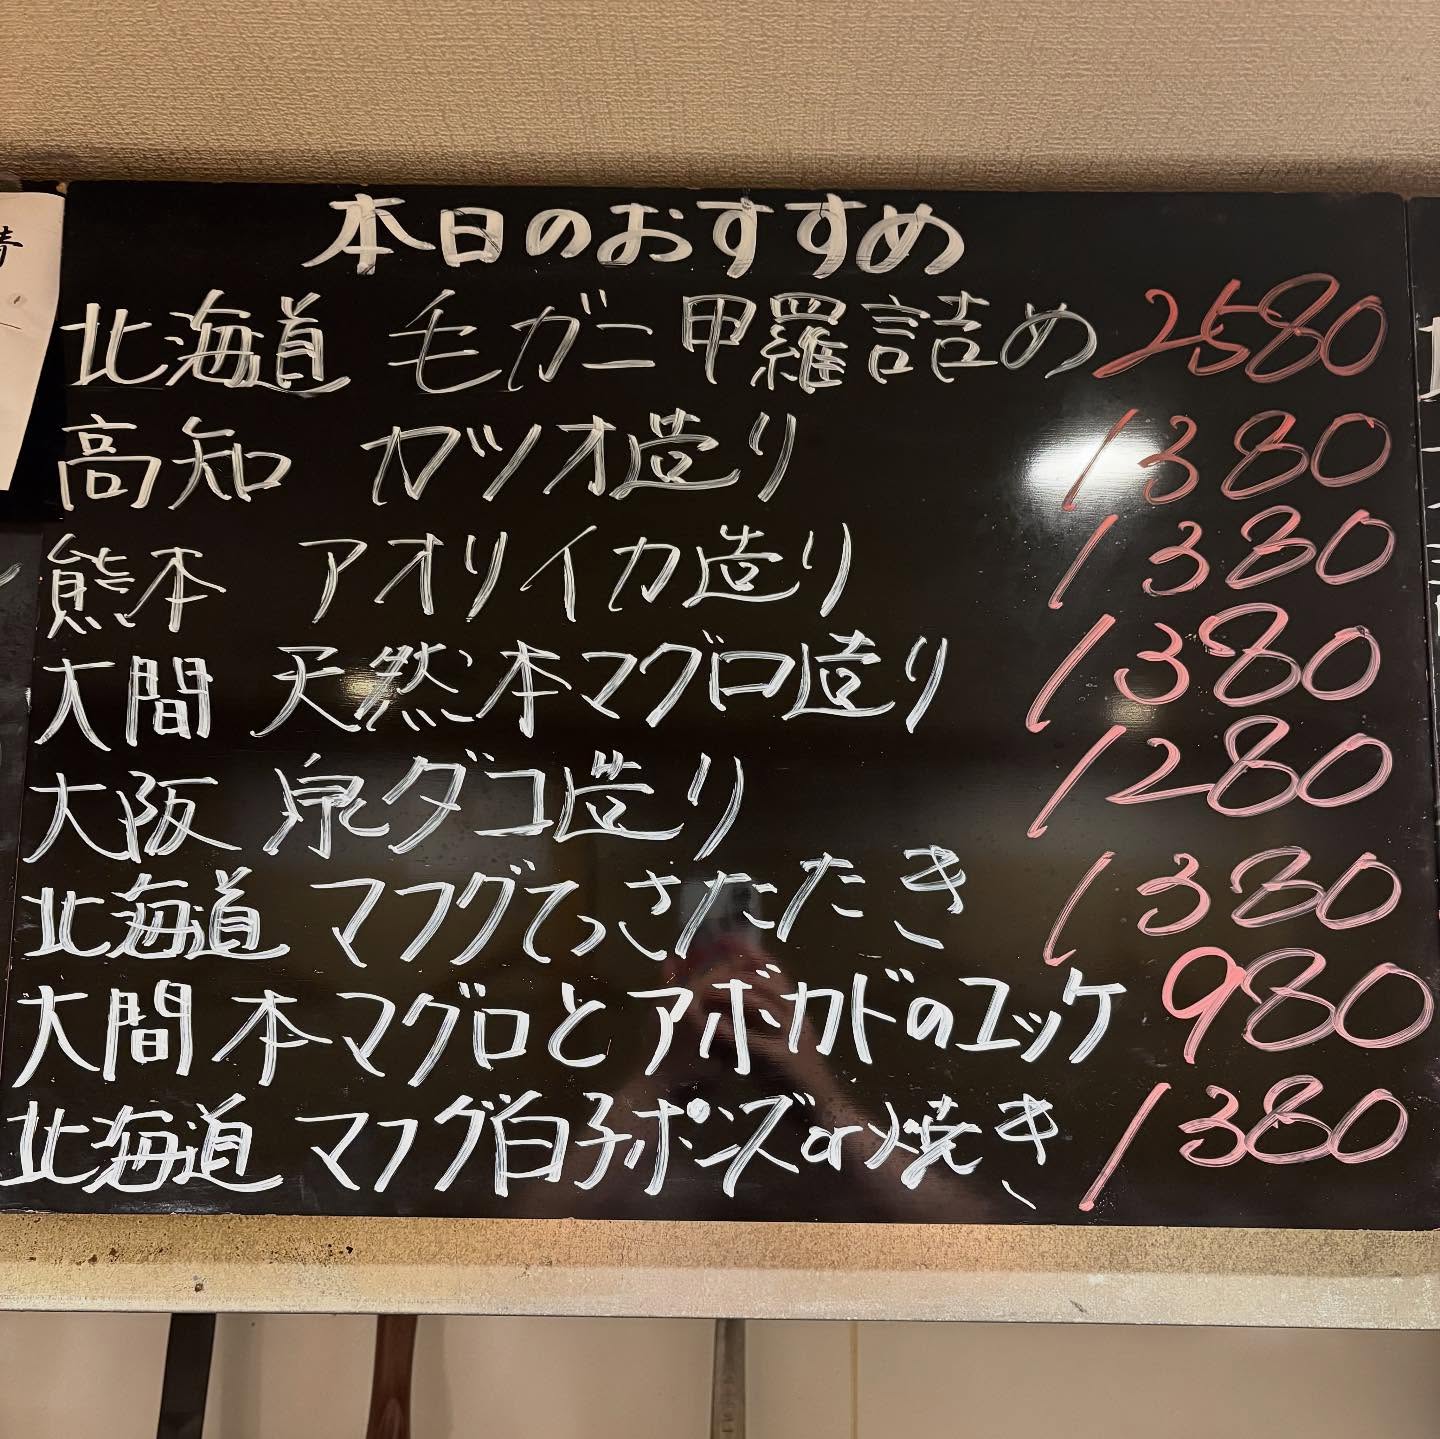 本日のおすすめ
北海道 毛ガニ甲羅詰め 2580
高知 カツオ造り 1380
熊本 アオリイカ造り 1380
大間 天然本マグロ造り 1380
大阪 泉ダコ造り 1280
北海道 マフグてっさたたき 1380
大間本マグロとアボカドのユッケ 980
北海道 マフグ白子ポンズor焼き 1380